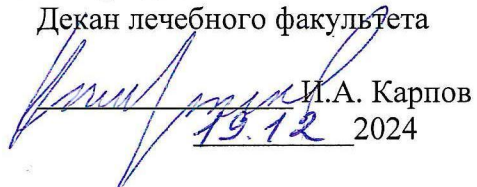 Декан лечебного факультета
И.А. Карпов
19.12 2024